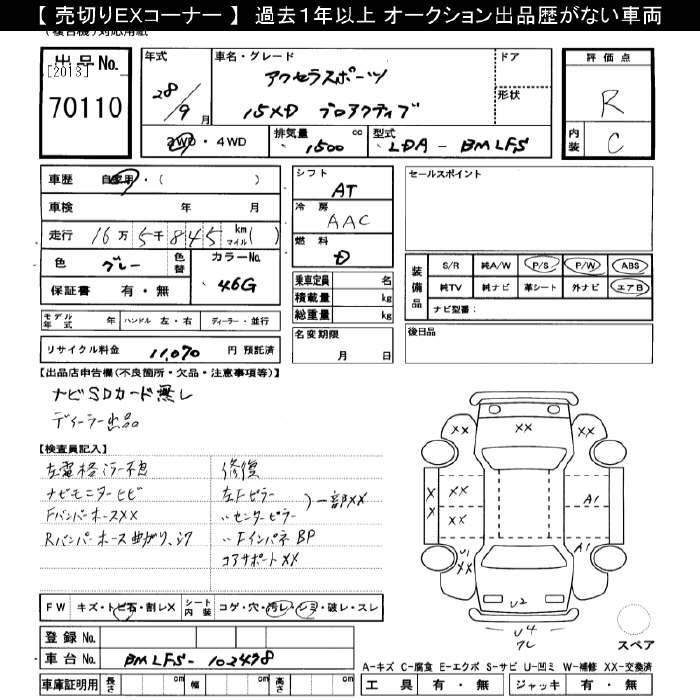 【 売切りEXコーナー 】 過去1年以上 オークション出品歴がない車両
出品No.
[2013]
70110
年式
28/9月
車名・グレード
アクセラスポーツ
15XD プロアクティブ
ドア
形状
2WD・4WD
排気量
1500 cc
型式
LDA-BMLFS
評価点
R
内装
C
車歴 自家用・( )
車検 年 月
走行 16万5千845 km マイル( )
色 グレー 色替 カラーNo. 46G
保証書 有・無
モデル年式 年 ハンドル 左・右 ディーラー・並行
リサイクル料金 11,070 円 預託済
シフト
AT
冷房
AAC
燃料
D
乗車定員 名
積載量 kg
総重量 kg
名変期限
月 日
セールスポイント
装備品
S/R 純A/W P/S P/W ABS
純TV 純ナビ 革シート 外ナビ エアB
ナビ型番:
後日品
【出品店申告欄(不良箇所・欠品・注意事項等)】
ナビSDカード無し
ディーラー出品
【検査員記入】
左電格ミラー不良
ナビモニターヒビ
FバンパーホースXX
Rバンパーホース曲がり、シワ
修復
左Fピラー
〃センターピラー
)一部XX
〃Fインパネ BP
コアサポートXX
FW キズ・トビ石・割レX シート内装 コゲ・穴・汚レ・シミ・破レ・スレ
登録No.
車台No. BMLFS-102478
車庫証明用 長さ cm 幅 cm 高さ cm
XX XX XX
XX XX A1
XX
U1 XX A1
U2
U4
ワレ
スペア
A-キズ C-腐食 E-エクボ S-サビ U-凹ミ W-補修 XX-交換済
工具 有・無 ジャッキ 有・無